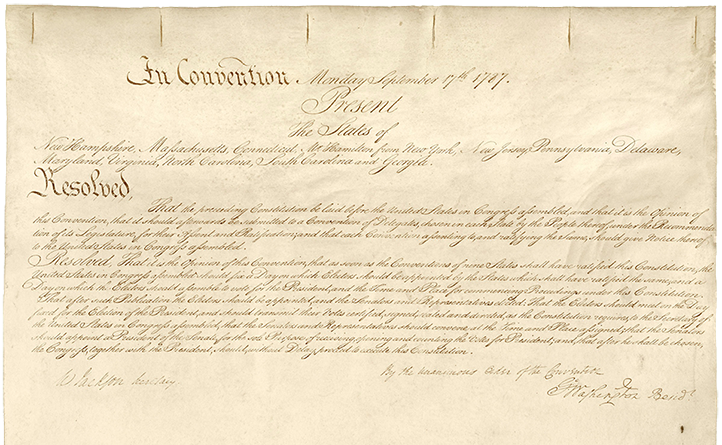 In Convention Monday September 17th 1787.
Present
The States of
New Hampshire, Massachusetts, Connecticut, Mr. Hamilton from New York, New Jersey, Pennsylvania, Delaware,
Maryland, Virginia, North Carolina, South Carolina and Georgia.
Resolved,
That the preceeding Constitution be laid before the United States in Congress assembled, and that it is the Opinion of
this Convention, that it should afterwards be submitted to a Convention of Delegates, chosen in each State by the People thereof, under the Recommenda-
tion of its Legislature, for their Assent and Ratification; and that each Convention assenting to, and ratifying the Same, should give Notice thereof
to the United States in Congress assembled.
Resolved, That it is the Opinion of this Convention, that as soon as the Conventions of nine States shall have ratified this Constitution, the
United States in Congress assembled should fix a Day on which Electors should be appointed by the States which shall have ratified the same, and a
Day on which the Electors should assemble to vote for the President, and the Time and Place for commencing Proceedings under this Constitution.
That after such Publication the Electors should be appointed, and the Senators and Representatives elected: That the Electors should meet on the Day
fixed for the Election of the President, and should transmit their Votes certified, signed, sealed and directed, as the Constitution requires, to the Secretary of
the United States in Congress assembled, that the Senators and Representatives should convene at the Time and Place assigned; that the Senators
should appoint a President of the Senate, for the sole Purpose of receiving, opening and counting the Votes for President; and, that after he shall be chosen,
the Congress, together with the President, should, without Delay, proceed to execute this Constitution.
By the unanimous Order of the Convention
W. Jackson Secretary.
Go Washington Presidt.